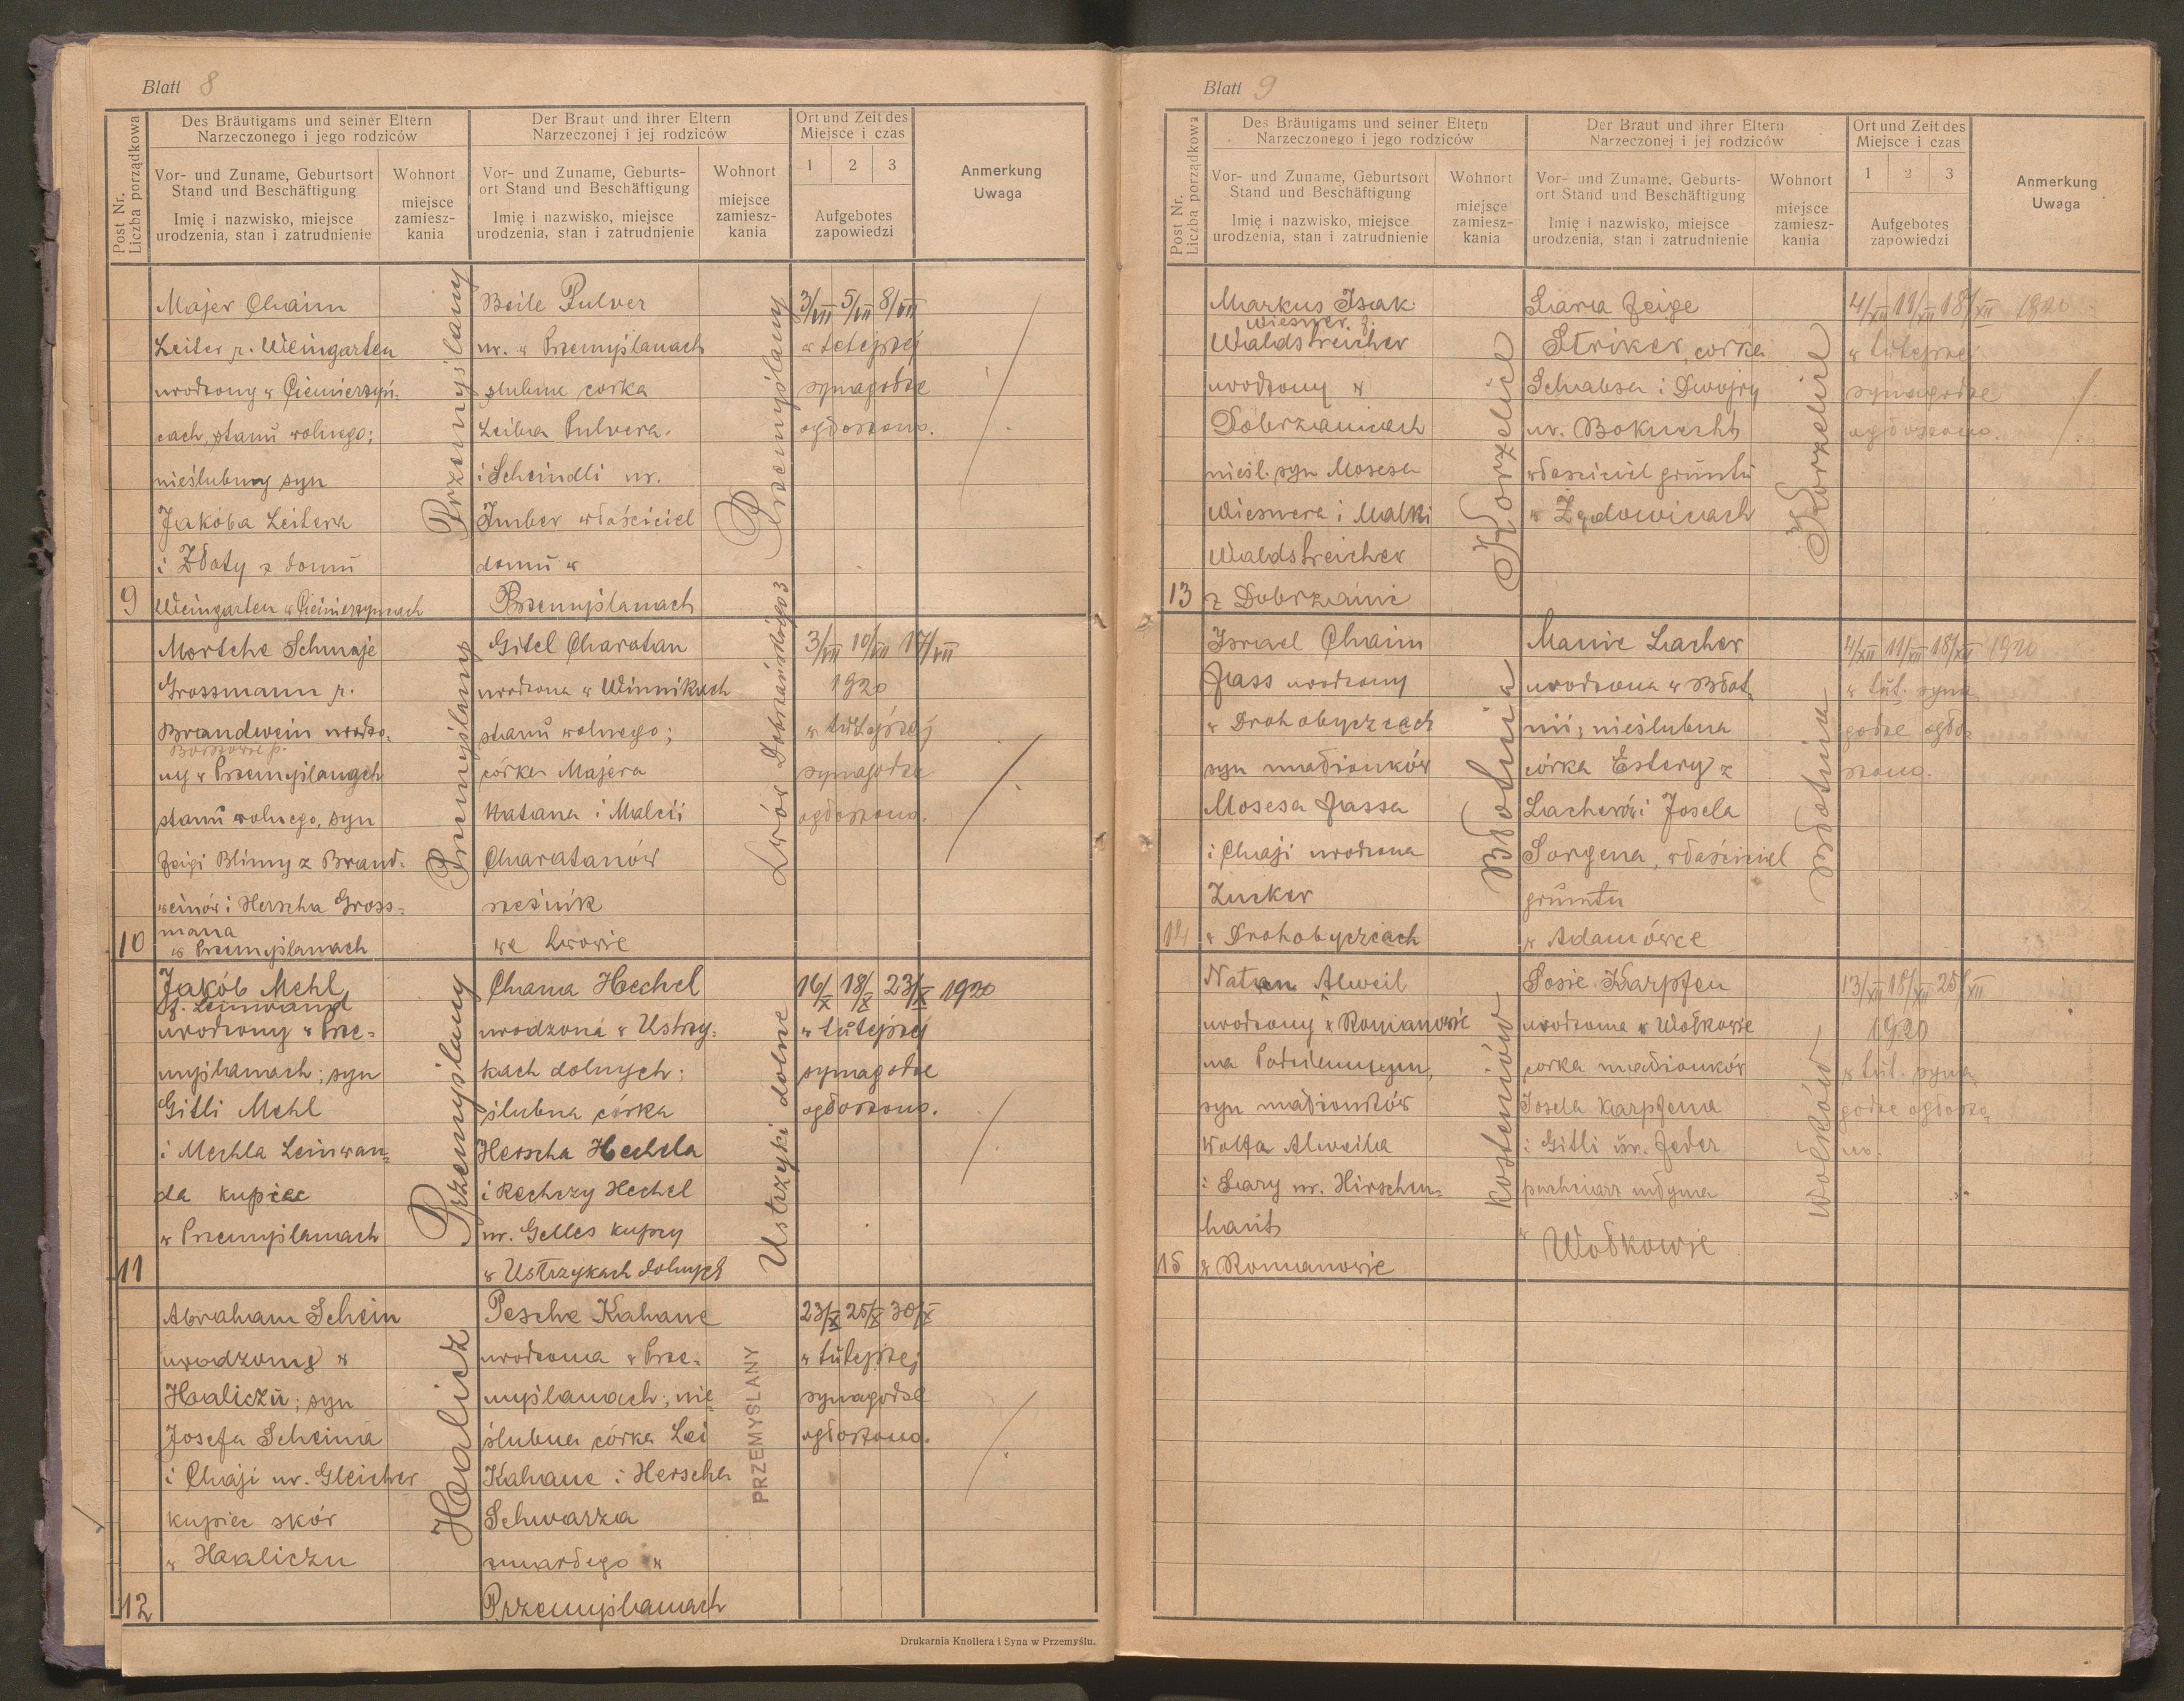 Blatt 8
Post Nr.
Liczba porządkowa
Des Bräutigams und seiner Eltern
Narzeczonego i jego rodziców
Der Braut und ihrer Eltern
Narzeczonej i jej rodziców
Ort und Zeit des
Miejsce i czas
Anmerkung
Uwaga
Vor- und Zuname, Geburtsort
Stand und Beschäftigung
Imię i nazwisko, miejsce
urodzenia, stan i zatrudnienie
Wohnort
miejsce
zamiesz-
kania
Vor- und Zuname, Geburts-
ort Stand und Beschäftigung
Imię i nazwisko, miejsce
urodzenia, stan i zatrudnienie
Wohnort
miejsce
zamiesz-
kania
1 2 3
Aufgebotes
zapowiedzi
9
Majer Chaim
Leiter r. Weingarten
urodzony w Ciemierzyń-
cach, stanu wolnego;
nieślubny syn
Jakóba Leitera
i Złoty z domu
Weingarten w Ciemierzyńcach
Przemyślany
Beile Pulver
ur. w Przemyślanach
ślubna corka
Leiba Pulvera
i Scheindli ur.
Imber właściciel
domu w
Przemyślanach
Przemyślany
3/VII 5/VII 8/VII
w tutejszej
synagodze
ogłoszono.
10
Mortche Schmaje
Grossmann r.
Brandwein urodzo-
ny w Przemyślanach
stanu wolnego, syn
Feigi Blimy z Brand-
weinów i Herscha Gross-
mana
w Przemyślanach
Przemyślany
Gitel Charatan
urodzona w Winnikach
stanu wolnego;
córka Majera
Natana i Malcii
Charatanów
rzeźnik
we Lwowie
Lwów
3/VII 10/VII 17/VII
1920
w tutejszej
synagodze
ogłoszono.
11
Jakób Mehl
f. Leinwand
urodzony w Prze-
myślanach; syn
Gitli Mehl
i Mechla Leinwan-
da kupiec
w Przemyślanach
Przemyślany
Chana Hechel
urodzona w Ustrzy-
kach dolnych;
ślubna córka
Herscha Hechla
i Rechczy Hechel
ur. Gelles kupcy
w Ustrzykach dolnych
Ustrzyki dolne
16/X 18/X 23/X 1920
w tutejszej
synagodze
ogłoszono.
12
Abraham Schein
urodzony w
Haliczu; syn
Josefa Scheina
i Chaji ur. Gleicher
kupiec skór
w Haliczu
Halicz
Pesche Kahane
urodzona w Prze-
myślanach; nie-
ślubna córka Lei
Kahane i Herscha
Schwarza
zmarłego w
Przemyślanach
PRZEMYSLANY
23/X 25/X 30/X
w tutejszej
synagodze
ogłoszono.
Drukarnia Knollera i Syna w Przemyślu.
Blatt 9
Post Nr.
Liczba porządkowa
Des Bräutigams und seiner Eltern
Narzeczonego i jego rodziców
Der Braut und ihrer Eltern
Narzeczonej i jej rodziców
Ort und Zeit des
Miejsce i czas
Anmerkung
Uwaga
Vor- und Zuname, Geburtsort
Stand und Beschäftigung
Imię i nazwisko, miejsce
urodzenia, stan i zatrudnienie
Wohnort
miejsce
zamiesz-
kania
Vor- und Zuname, Geburts-
ort Stand und Beschäftigung
Imię i nazwisko, miejsce
urodzenia, stan i zatrudnienie
Wohnort
miejsce
zamiesz-
kania
1 2 3
Aufgebotes
zapowiedzi
13
Markus Isak
Wiesner f.
Waldstreicher
urodzony w
Dobrzanicach
nieśl. syn Mosesa
Wiesnera i Malki
Waldstreicher
z Dobrzanic
Korzelice
Sara Feige
Striker, corka
Schabsa i Dwojry
ur. Boknecht
właściciel gruntu
w Zędowicach
Korzelice
4/XII 11/XII 18/XII 1920
w tutejszej
synagodze
ogłoszono.
14
Israel Chaim
Fass urodzony
w Drohobyczach
syn małżonków
Mosesa Fassa
i Chaji urodzona
Zucker
w Drohobyczach
Błotnia
Manie Lacher
urodzona w Błot-
nii; nieślubna
córka Estery z
Lacherów i Josela
Sorgena, właściciel
gruntu
w Adamówce
Błotnia
4/XII 11/XII 18/XII 1920
w tut. syna-
godze ogło-
szono.
15
Natan Alweil
urodzony w Romanowie
syn małżonków
Wolfa Alweila
i Sary ur. Hirschen-
haut
w Romanowie
Kosteniów
Sosie Karpfen
urodzona w Wołkowie
corka małżonków
Josela Karpfena
i Gitli ur. Feder
w
Wołkowie
Wołków
13/XII 18/XII 25/XII
1920
w tut. syna-
godze ogłoszo-
no.